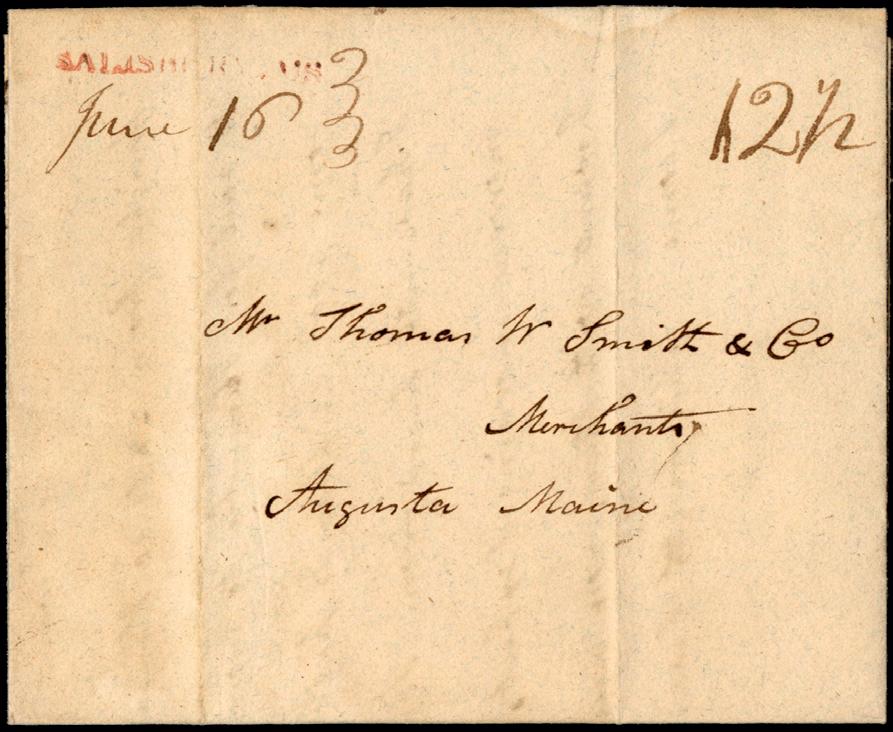 SALISBURY. MS
June 16
12½
Mr Thomas W Smith & Co
Merchants
Augusta Maine